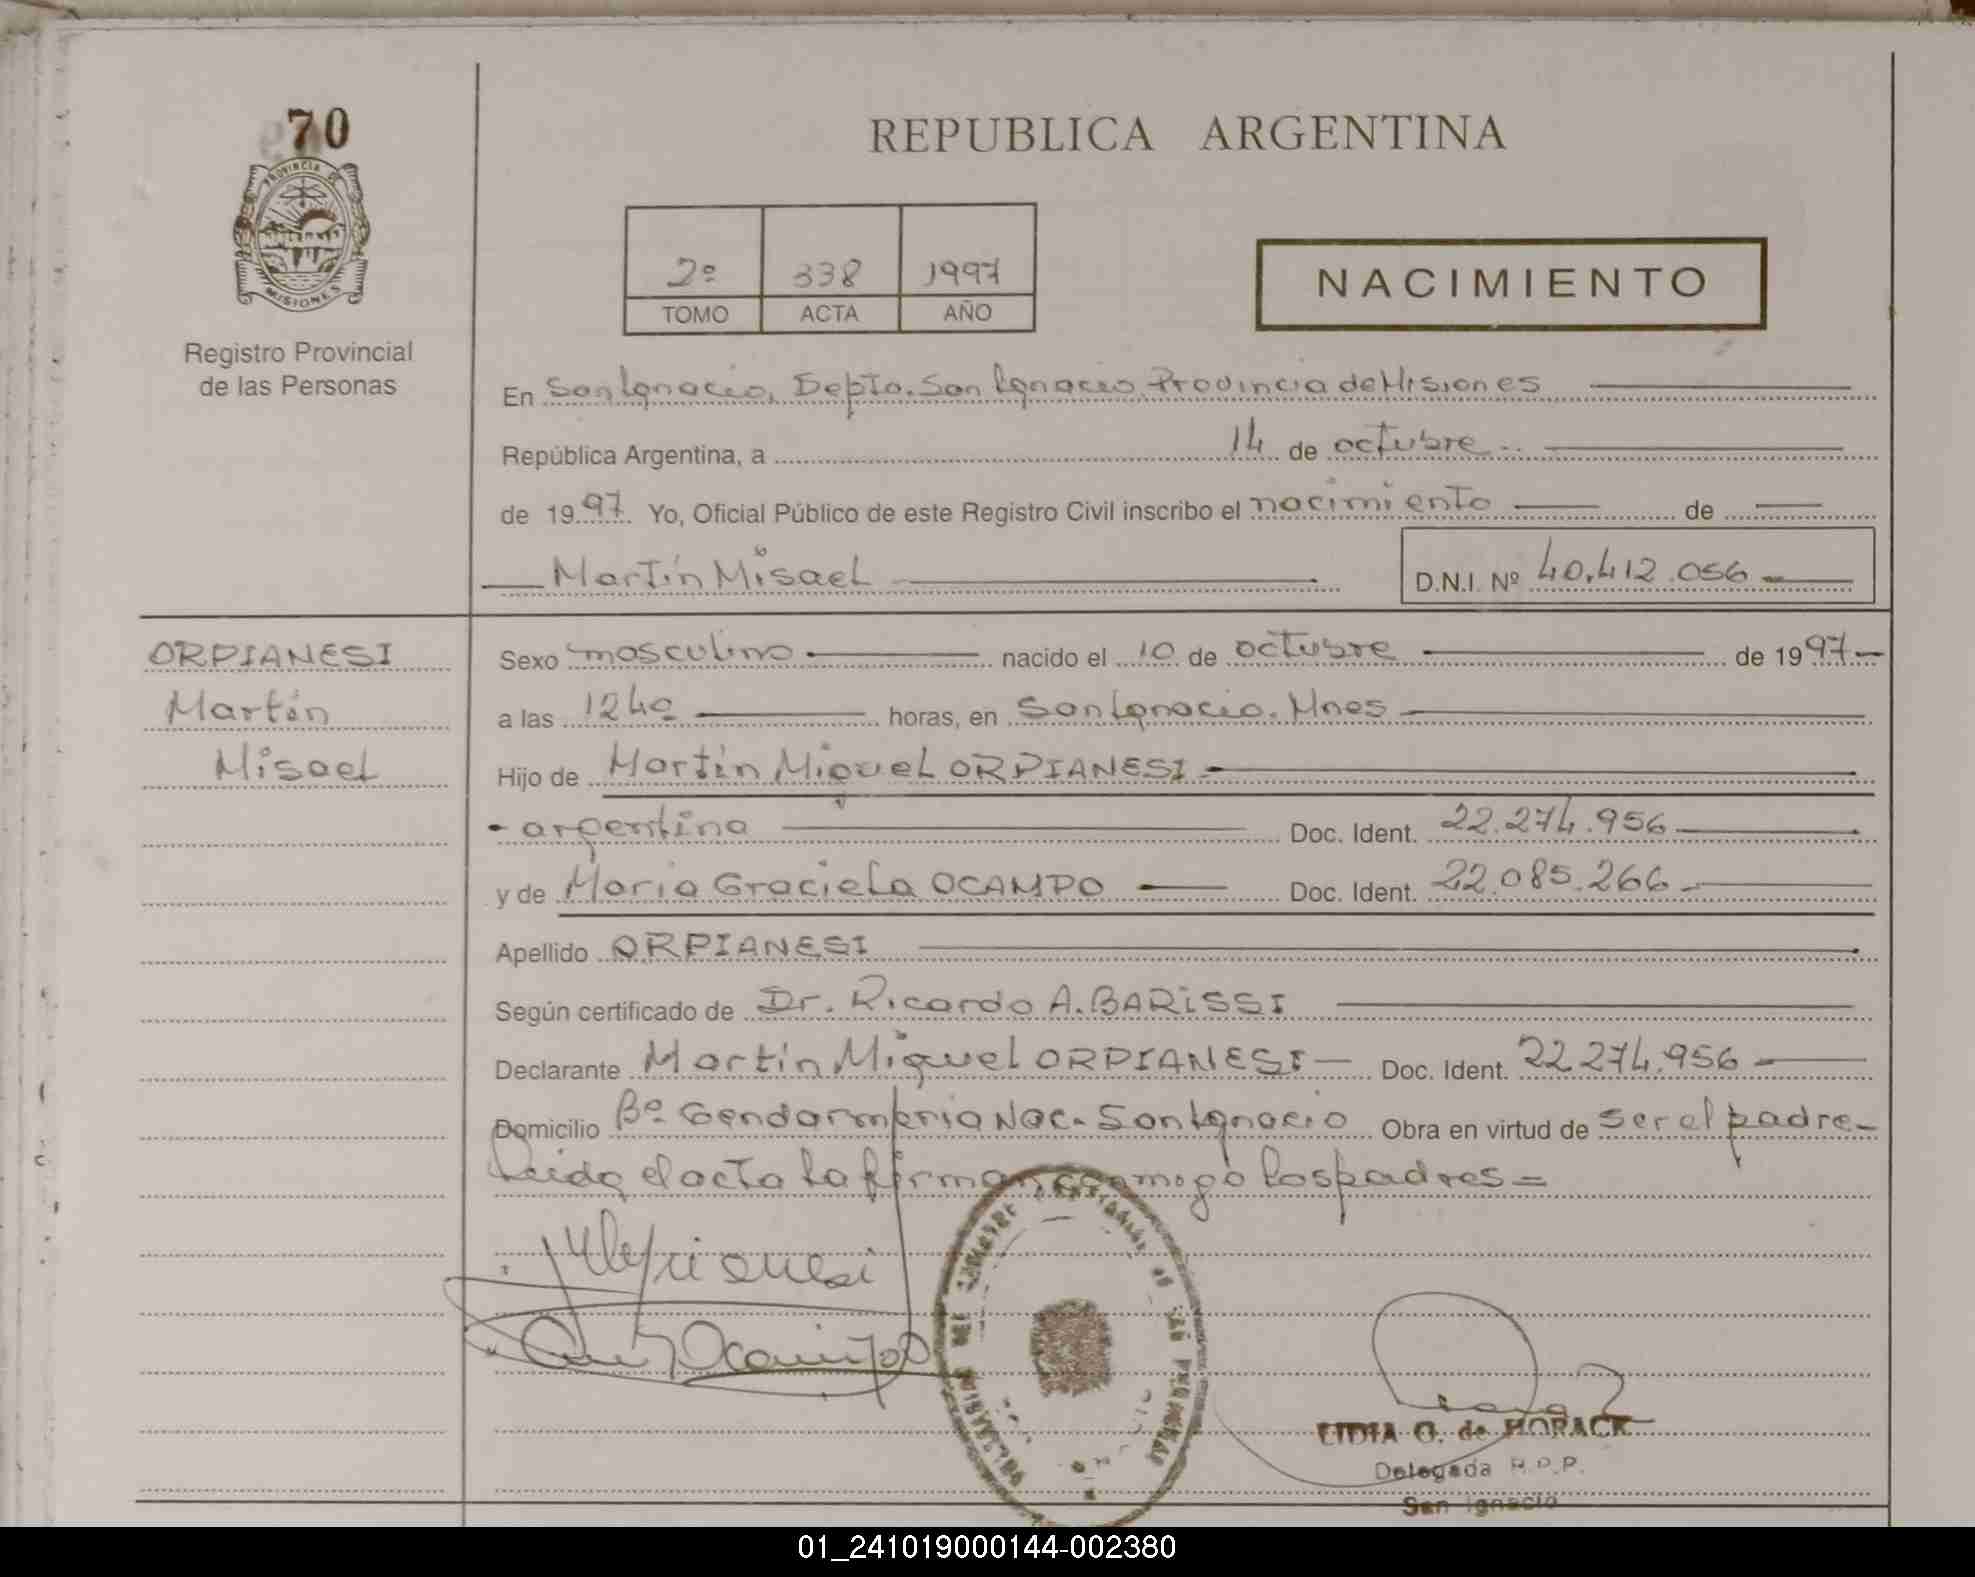 70
PROVINCIA DE
MISIONES
Registro Provincial
de las Personas
REPUBLICA ARGENTINA
2º 338 1997
TOMO ACTA AÑO
NACIMIENTO
En San Ignacio, Depto. San Ignacio Provincia de Misiones
República Argentina, a 14 de octubre
de 1997 Yo, Oficial Público de este Registro Civil inscribo el nacimiento de
Martín Misael D.N.I. Nº 40.412.056
ORPIANESI
Martín
Misael
Sexo masculino nacido el 10 de octubre de 1997
a las 12 horas, en San Ignacio. Mnes
Hijo de Martín Miguel ORPIANESI
argentina Doc. Ident. 22.274.956
y de Maria Graciela OCAMPO Doc. Ident. 22.085.266
Apellido ORPIANESI
Según certificado de Dr. Ricardo A. BARISSI
Declarante Martín Miguel ORPIANESI Doc. Ident. 22.274.956
Domicilio Bº Gendarmeria Nac. San Ignacio Obra en virtud de ser el padre
Leida el acta la firman conmigo los padres
Ocampo
LIDIA G. de HORACK
Delegada R.P.P.
San Ignacio
01_241019000144-002380